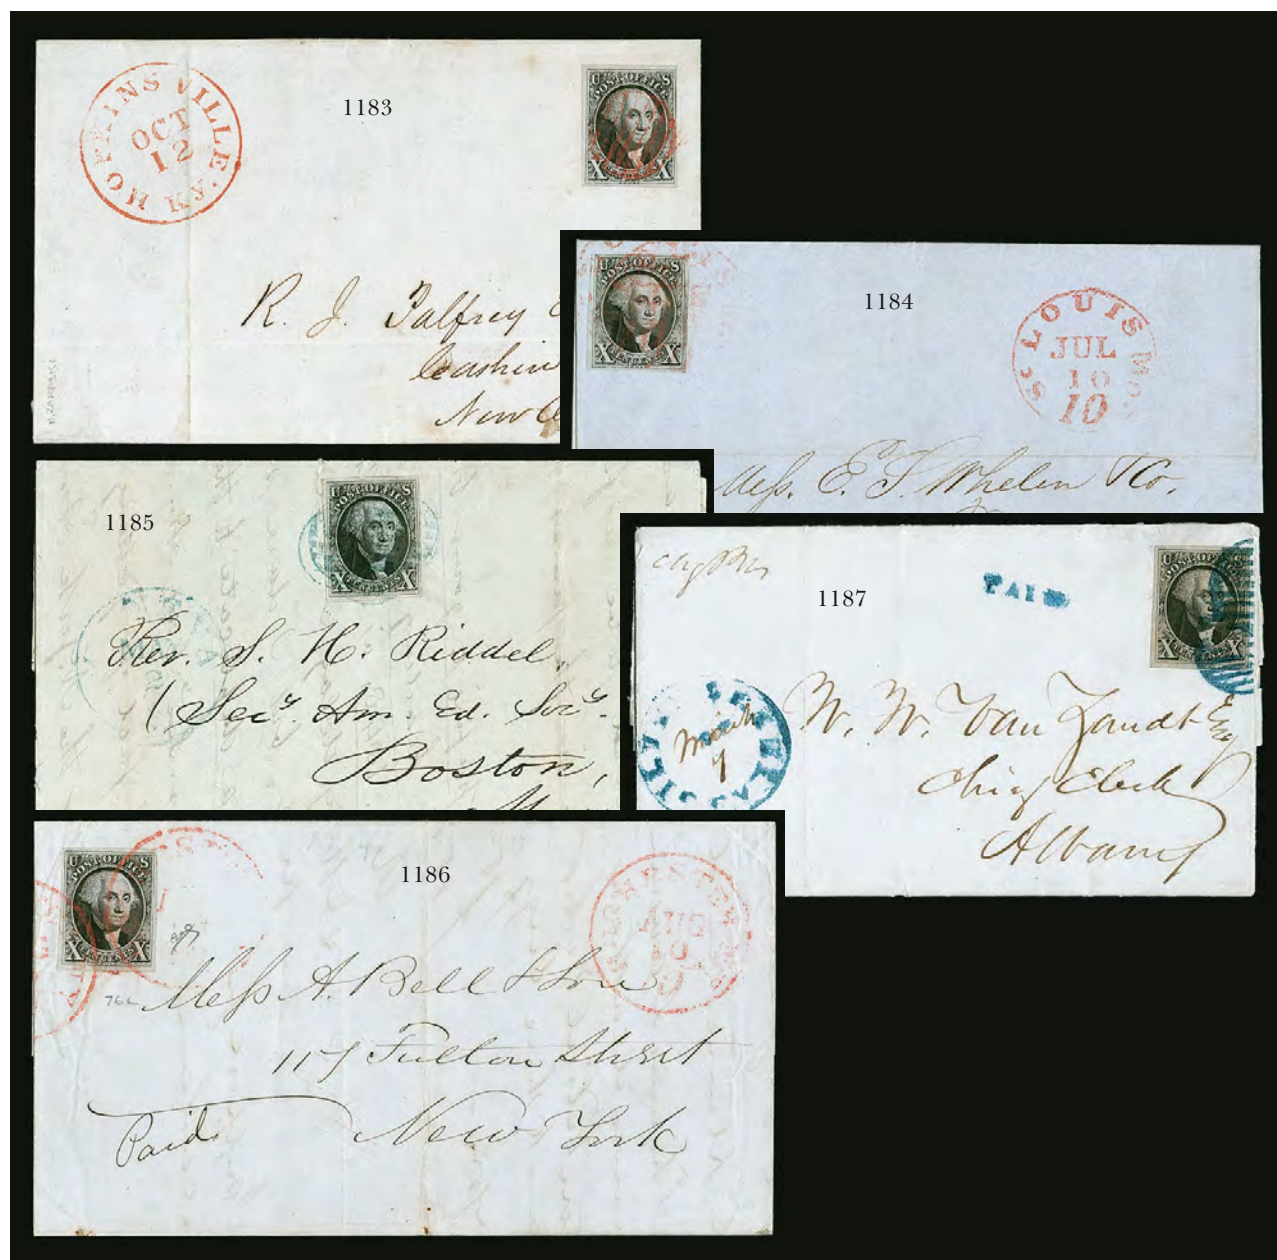 1183
HOPKINSVILLE KY
OCT
12
U S
POST OFFICE
X X
R. J. Palfrey
Cashier
New
1184
U S
POST OFFICE
X X
St LOUIS Mo.
JUL
10
10
Mess. E. S. Whelen & Co.
1185
U S
POST OFFICE
X X
Rev. S. H. Riddel.
(Secy. Am. Ed. Socy.
Boston,
1187
PAID
U S
POST OFFICE
X X
March
7
W. W. Van Zandt Esq
Chief Clerk
Albany
1186
U S
POST OFFICE
X X
AUG
10
Mess A. Bell & Son
Fulton Street
Paid
New York